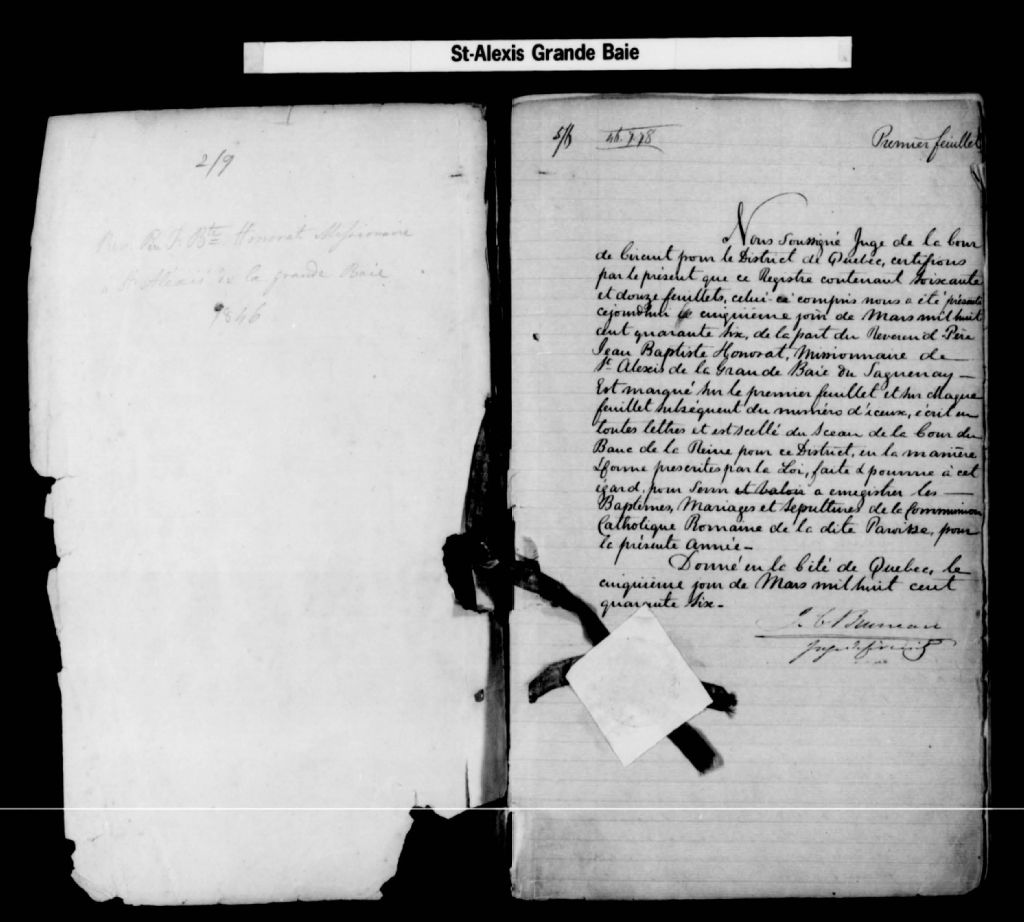 St-Alexis Grande Baie
2/9
Rev. Père J. Bte Honorat Missionaire
St Alexis de la grande Baie
1846
Premier feuillet
Nous Soussigné Juge de la Cour
de Circuit pour le District de Quebec, certifions
par le présent que ce Registre contenant soixante
et douze feuillets, celui-ci compris nous a été présenté
cejourdhui le cinquième jour de Mars mil huit
cent quarante six, de la part du Reverend Père
Jean Baptiste Honorat, Missionnaire de
St Alexis de la Grande Baie du Saguenay —
Est marqué sur le premier feuillet et sur chaque
feuillet subséquent du numéro d'iceux, écrit en
toutes lettres et est scellé du Sceau de la Cour du
Banc de la Reine pour ce District, en la manière
& forme prescrites par la Loi, faite & pourvue à cet
égard, pour servir et valoir a enregistrer les —
Baptêmes, Mariages et Sépultures de la Communion
Catholique Romaine de la dite Paroisse, pour
la présente Année —
Donné en la Cité de Quebec, le
cinquième jour de Mars mil huit cent
quarante six —
Bruneau
Juge de Circuit